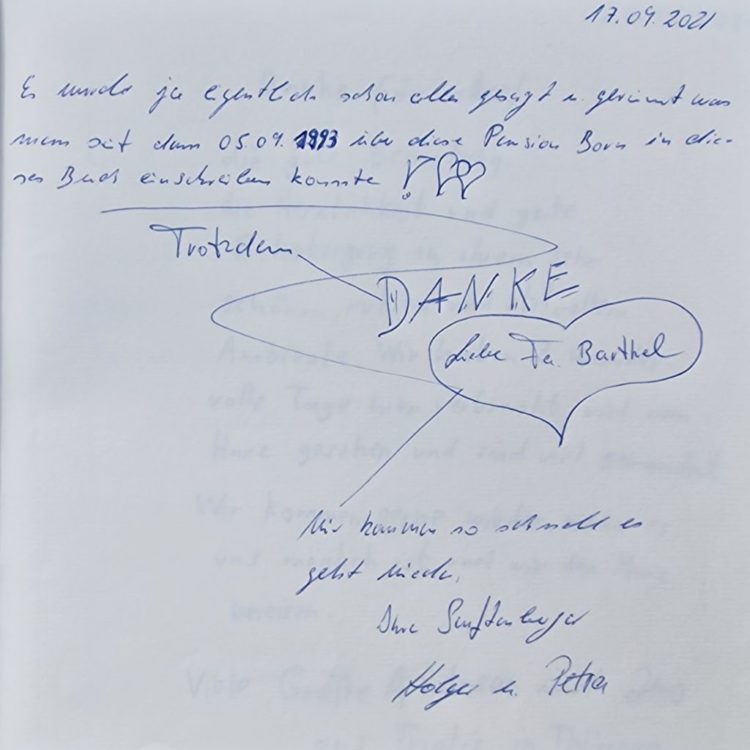 17.09.2021
Es wurde ja eigentlich schon alles gesagt u. gereimt was
man seit dem 05.09.1993 über diese Pension Born in die-
ses Buch einschreiben konnte !
Trotzdem
DANKE
Liebe Fr. Barthel
Wir kommen so schnell es
geht wieder.
Ihre Senftenberger
Holger u. Petra